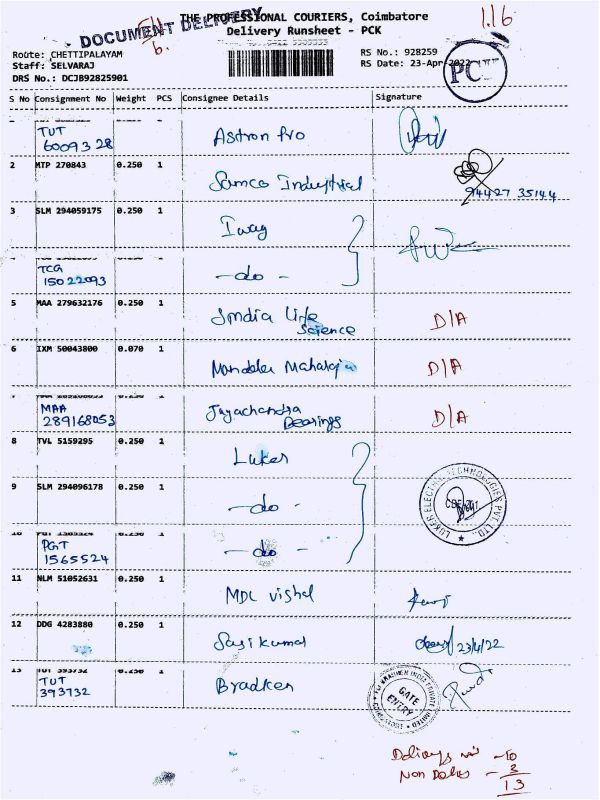 THE PROFESSIONAL COURIERS, Coimbatore
DOCUMENT DELIVERY
1.16
Delivery Runsheet - PCK
Route: CHETTIPALAYAM
Staff: SELVARAJ
DRS No.: DCJB92825901
RS No.: 928259
RS Date: 23-Apr-2022
PC
S No Consignment No Weight PCS Consignee Details Signature
TUT 6009328 Astron Pro
2 MTP 270843 0.250 1 Samco Industrial 94427 35144
3 SLM 294059175 0.250 1 Iway
TCG 15022093 -do-
5 MAA 279632176 0.250 1 India Life Science D/A
6 IXM 50043800 0.070 1 Nandolu Maharaja D/A
MAA 289168053 Jayachandra Bearings D/A
8 TVL 5159295 0.250 1 Luker
9 SLM 294096178 0.250 1 -do-
LUKER ELECTRIC TECHNOLOGIES PVT. LTD.
PGT 1565524 -do-
11 NLM 51052631 0.250 1 MDL Vishal
12 DDG 4283880 0.250 1 Sasikumar 23/4/22
13 TUT 393732 0.250 1
TUT 393732 Bradken
GATE ENTRY
- 10
- 3
13